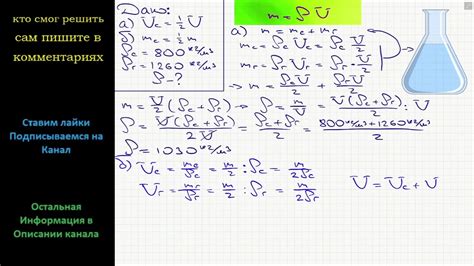 кто смог решить
сам пишите в
комментариях
Ставим лайки
Подписываемся на
Канал
Остальная
Информация в
Описании канала
Дано:
а) V_c = 1/2 V
б) m_c = 1/2 m
ρ_c = 800 кг/м³
ρ_г = 1260 кг/м³
ρ - ?
m = ρ V
а) m = m_c + m_г
m_c = ρ_c V_c = ρ_c V/2
m_г = ρ_г V_г = ρ_г · V/2
→ m = ρ_c V/2 + ρ_г V/2
m = V/2 (ρ_c + ρ_г) → ρ = m/V = V(ρ_c + ρ_г)/2V
ρ = V(ρ_c + ρ_г)/2V = (ρ_c + ρ_г)/2 = (800 кг/м³ + 1260 кг/м³)/2
ρ = 1030 кг/м³
б) V_c = m_c/ρ_c = m/2 : ρ_c = m/2ρ_c
V_г = m_г/ρ_г = m/2 : ρ_г = m/2ρ_г
V = V_c + V